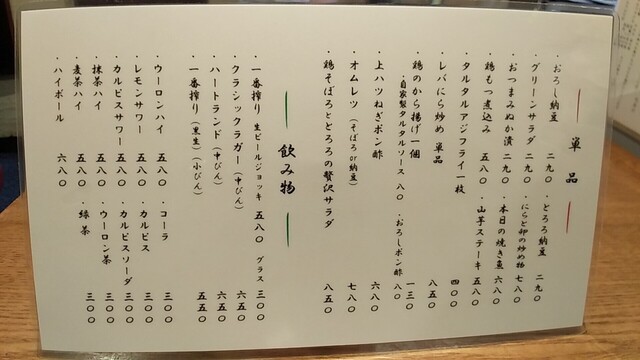 単品
・おろし納豆 二九〇
・とろろ納豆 二九〇
・グリーンサラダ 二九〇
・にらと卵の炒め物 七八〇
・おつまみぬか漬 二九〇
・本日の焼き魚 六八〇
・鶏もつ煮込み 五八〇
・山芋ステーキ 五八〇
・タルタルアジフライ一枚 四〇〇
・レバにら炒め 単品 八五〇
・鶏のから揚げ一個 一三〇
・自家製タルタルソース 八〇
・おろしポン酢 八〇
・上ハツねぎポン酢 六八〇
・オムレツ(そぼろor納豆) 七八〇
・鶏そぼろととろろの贅沢サラダ 八五〇
飲み物
・一番搾り 生ビールジョッキ 五八〇 グラス 三〇〇
・クラシックラガー(中びん) 六五〇
・ハートランド(中びん) 六五〇
・一番搾り(黒生)(小びん) 五五〇
・ウーロンハイ 五八〇
・コーラ 三〇〇
・レモンサワー 五八〇
・カルピス 三〇〇
・カルピスサワー 五八〇
・カルピスソーダ 三〇〇
・抹茶ハイ 五八〇
・ウーロン茶 三〇〇
・麦茶ハイ 五八〇
・緑茶 三〇〇
・ハイボール 六八〇